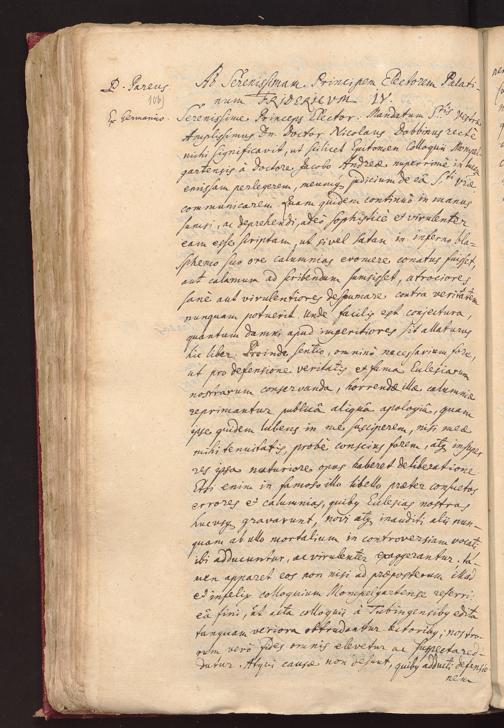 D. Pareus
106
Ex Germanico.
Ad Serenissimum Principem Electorem Palati
num FRIDERICUM IV.
Serenissime Princeps Elector. Mandatum S.tis Vestræ
Amplissimus Dn. Doctor Nicolaus Dobbinus recte
mihi significavit, ut scilicet Epitomen Colloquii Mompel
gartensis à Doctore Jacobo Andreæ nuperrime in lucem
emissam perlegerem, meumq; judicium de eâ S.ti V.æ
communicarem. Quam quidem continuò in manus
sumsi, ac deprehendi, adeò sophisticè et virulenter
eam esse scriptam, ut si vel Satan in inferno bla-
sphemo suo ore calumnias evomere conatus fuisset
aut calamum ad scribendum sumsisset, atrociores
sanè aut virulentiores despumare contra veritatem
nunquam potuerit. Unde facilis est conjectura,
quantum damni apud imperitiores sit allaturus
hic liber. Proinde sentio, omninò necessarium fore,
ut pro defensione veritatis et fama Ecclesiarum
nostrarum conservanda, horrendæ illæ calumniæ
reprimantur publicâ aliquâ apologiâ, quam
ipse quidem lubens in me susciperem, nisi meæ
mihi tenuitatis, probè conscius forem, atq; insuper
res ipsa maturiore opus haberet deliberatione
Etsi enim in famoso illo libello præter consuetos
errores et calumnias, quibus Ecclesias nostras
hucusq; gravarunt, novi atq; inauditi, aliis nun-
quam ab ullo mortalium in controversiam vocati
ibi adducuntur, ac virulenter exaggerantur. ta-
men apparet eos non nisi ad præposterum illud
et infelix colloquium Mompelgartense referri
eâ fini, ut acta colloquii à Tubingensibus edita
tanquam veriora obtrudantur lectoribus, nostro-
rum verò fides omnis elevetur ac suspecta red-
datur. Atqui causæ non desunt, quibus adducti defensio
nem